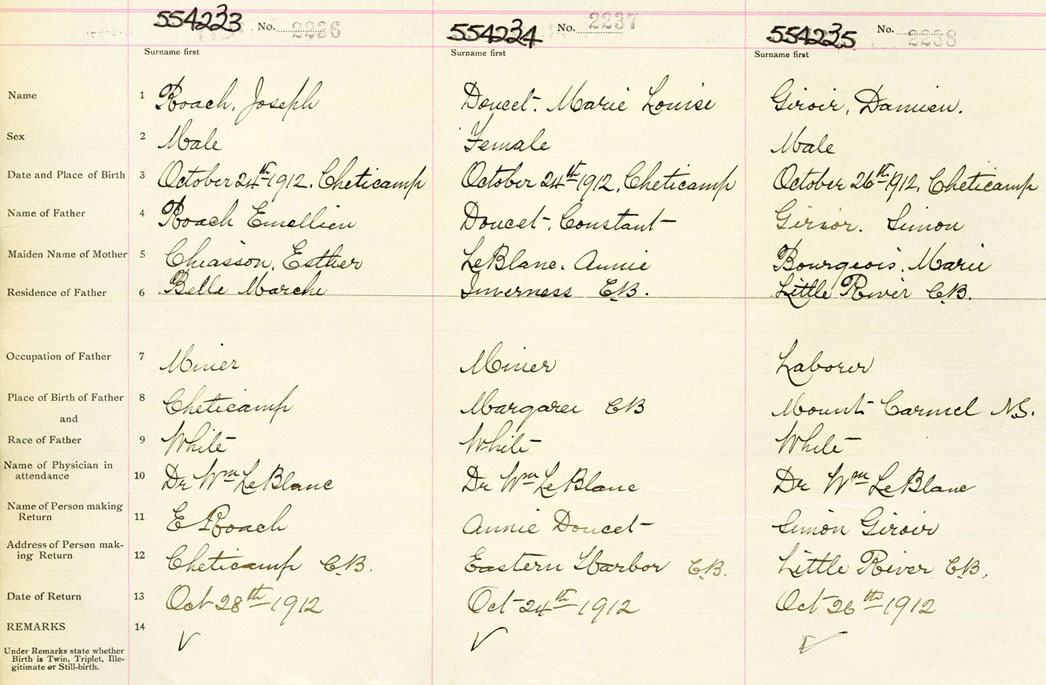 554223 No. 2236 554234 No. 2237 554235 No. 2238
Surname first Surname first Surname first
Name 1 Roach, Joseph Doucet. Marie Louise Giroir, Damien.
Sex 2 Male Female Male
Date and Place of Birth 3 October 24th 1912. Cheticamp October 24th 1912. Cheticamp October 26th 1912. Cheticamp
Name of Father 4 Roach Emellien Doucet, Constant Giroir. Simon
Maiden Name of Mother 5 Chiasson, Esther LeBlanc. Annie Bourgeois. Marie
Residence of Father 6 Belle Marche Inverness C.B. Little River C.B.
Occupation of Father 7 Miner Miner Laborer
Place of Birth of Father 8 Cheticamp Margaree CB Mount Carmel N.S.
and
Race of Father 9 White White White
Name of Physician in
attendance 10 Dr Wm LeBlanc Dr Wm LeBlanc Dr Wm LeBlanc
Name of Person making
Return 11 E Roach Annie Doucet Simon Giroir
Address of Person mak-
ing Return 12 Cheticamp C.B. Eastern Harbor C.B. Little River C.B.
Date of Return 13 Oct 28th 1912 Oct 24th 1912 Oct 26th 1912
REMARKS 14
Under Remarks state whether
Birth is Twin, Triplet, Ille-
gitimate or Still-birth.